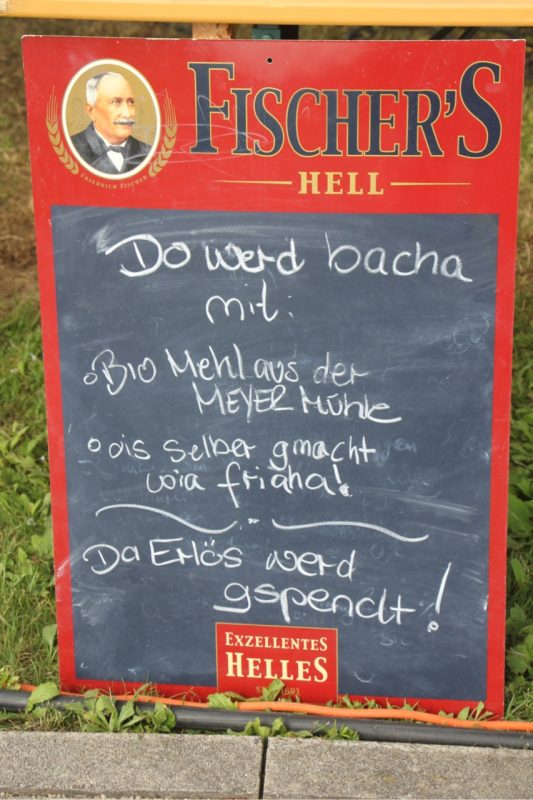 FRIEDRICH FISCHER
FISCHER'S
HELL
Do werd bacha
mit:
Bio Mehl aus der
MEYER Mühle
ois selber gmacht
wia friaha!
Da Erlös werd
gspendt!
EXZELLENTES
HELLES